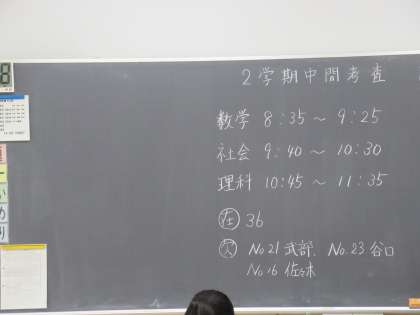 2学期中間考査
数学 8:35 〜 9:25
社会 9:40 〜 10:30
理科 10:45 〜 11:35
在 36
欠 No.21 武部、No.23 谷口
No.16 佐々木